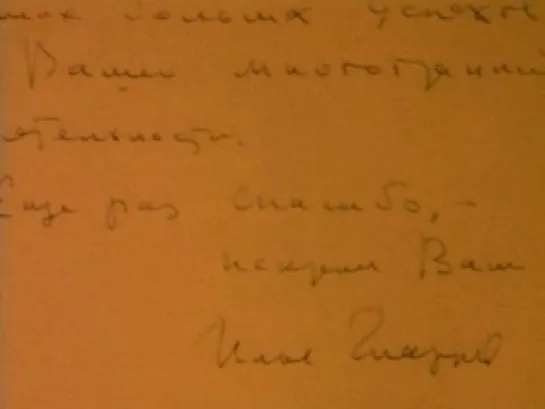 больших успехов
Вашей многогранной
ятельности.
Еще раз спасибо, –
искренне Ваш
Илья